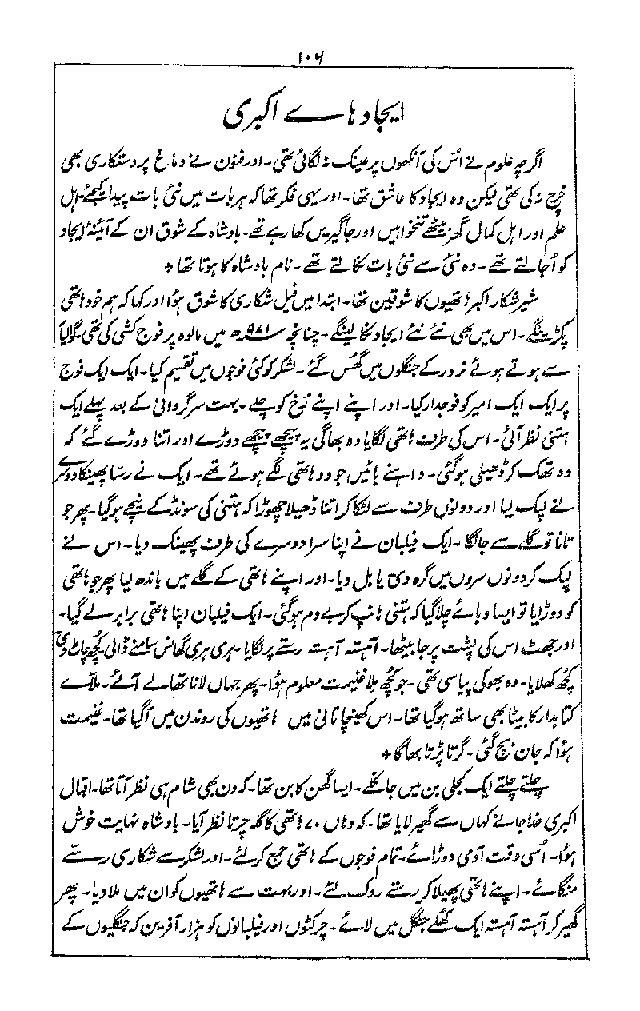 ۱۰۶
ایجاد ہاے اکبری
اگرچہ علوم نے اُس کی آنکھوں پر عینک نہ لگائی تھی۔ اور فنون نے دماغ پر دستکاری بھی
خرچ نہ کی تھی لیکن وہ ایجاد کا عاشق تھا۔ اور یہی فکر تھا کہ ہر بات میں نئی بات پیدا کیجئے۔ اہل
علم اور اہل کمال گھر بیٹھے تنخواہیں اور جاگیریں کھا رہے تھے۔ بادشاہ کے شوق ان کے آئینۂ ایجاد
کو اُجالتے تھے۔ وہ نئی سے نئی بات نکالتے تھے۔ نام بادشاہ کا ہوتا تھا *
شیر شکار اکبر ہاتھیوں کا شوقین تھا۔ ابتدا میں فیل شکاری کا شوق ہؤا اور کہا کہ ہم خود ہاتھی
پکڑینگے۔ اس میں بھی نئے نئے ایجاد نکالینگے۔ چنانچہ ۹۷۱ ھ میں مالوہ پر فوج کشی کی تھی۔ گوالیار
سے ہوتے ہوئے نرور کے جنگلوں میں گھُس گئے۔ لشکر کو کئی فوجوں میں تقسیم کیا۔ ایک ایک فوج
پر ایک ایک امیر کو فوجدار کیا۔ اور اپنے اپنے رُخ کو چلے۔ بہت سرگردانی کے بعد پہلے ایک
ہتنی نظر آئی۔ اس کی طرف ہاتھی لگایا وہ بھاگی یہ پیچھے پیچھے دوڑے اور اتنا دوڑے گئے کہ
وہ تھک کر ڈھیلی ہو گئی۔ داہنے بائیں جو دو ہاتھی لگے ہوئے تھے۔ ایک نے رسا پھینکا دوسرے
نے لپک لیا اور دونوں طرف سے لٹکا کر اتنا ڈھیلا چھوڑا کہ ہتنی کی سونڈ کے نیچے ہو گیا۔ پھر جو
تانا تو گلے سے جا لگا۔ ایک فیلبان نے اپنا سرا دوسرے کی طرف پھینک دیا۔ اس نے
لپک کر دونوں سروں میں گرہ دی یا بل دیا۔ اور اپنے ہاتھی کے گلے میں باندھ لیا پھر جو ہاتھی
کو دوڑایا تو ایسا دبائے چلا گیا کہ ہتنی ہانپ کر بے دم ہو گئی۔ ایک فیلبان اپنا ہاتھی برابر لے گیا۔
اور جھٹ اس کی پشت پر جا بیٹھا۔ آہستہ آہستہ رستے پر لگایا۔ ہری ہری گھانس سامنے ڈالی کچھ چاٹ دی
کچھ کھلایا۔ وہ بھوکی پیاسی تھی۔ جو کچھ ملا غنیمت معلوم ہؤا۔ پھر جہاں لانا تھا لے آئے۔ ملّاے
کتابدار کا بیٹا بھی ساتھ ہو گیا تھا۔ اس کھینچا تانی میں ہاتھیوں کی روندن میں آ گیا تھا۔ غنیمت
ہؤا کہ جان بچ گئی۔ گرتا پڑتا بھاگا *
چلتے چلتے ایک کجلی بن میں جا نکلے۔ ایسا گھن کا بن تھا۔ کہ دن بھی شام ہی نظر آتا تھا۔ اقبال
اکبری خدا جانے کہاں سے گھیر لایا تھا۔ کہ وہاں ۷۰ ہاتھی کا گلہ چرتا نظر آیا۔ بادشاہ نہایت خوش
ہؤا۔ اُسی وقت آدمی دوڑائے۔ تمام فوجوں کے ہاتھی جمع کر لئے۔ اور لشکر سے شکاری رسّے
منگائے۔ اپنے ہاتھی پھیلا کر رستے روک لئے۔ اور بہت سے ہاتھیوں کو ان میں ملا دیا۔ پھر
گھیر کر آہستہ آہستہ ایک کھُلے جنگل میں لائے۔ چرکٹوں اور فیلبانوں کو ہزار آفرین کہ جنگلیوں کے